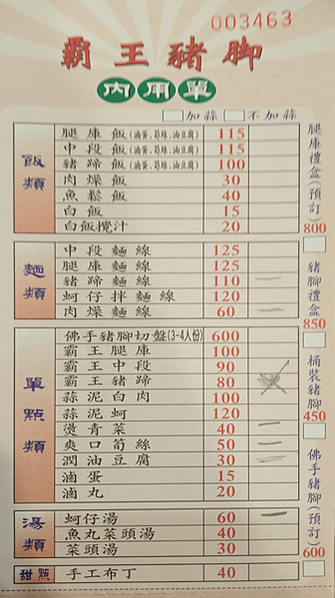 003463
霸王豬腳
內用單
加蒜 不加蒜
飯類
腿庫飯(滷蛋.筍絲.油豆腐) 115
中段飯(滷蛋.筍絲.油豆腐) 115
豬蹄飯(滷蛋.筍絲.油豆腐) 100
肉燥飯 30
魚鬆飯 40
白飯 15
白飯攪汁 20
麵類
中段麵線 125
腿庫麵線 125
豬蹄麵線 110
蚵仔拌麵線 120
肉燥麵線 60
單點類
佛手豬腳切盤(3-4人份) 600
霸王腿庫 100
霸王中段 90
霸王豬蹄 80
蒜泥白肉 100
蒜泥蚵 120
燙青菜 40
爽口筍絲 50
潤油豆腐 30
滷蛋 15
滷丸 20
湯類
蚵仔湯 60
魚丸菜頭湯 40
菜頭湯 30
甜點
手工布丁 40
腿庫禮盒(預訂) 800
豬腳禮盒 850
桶裝豬腳 450
佛手豬腳(預訂) 600